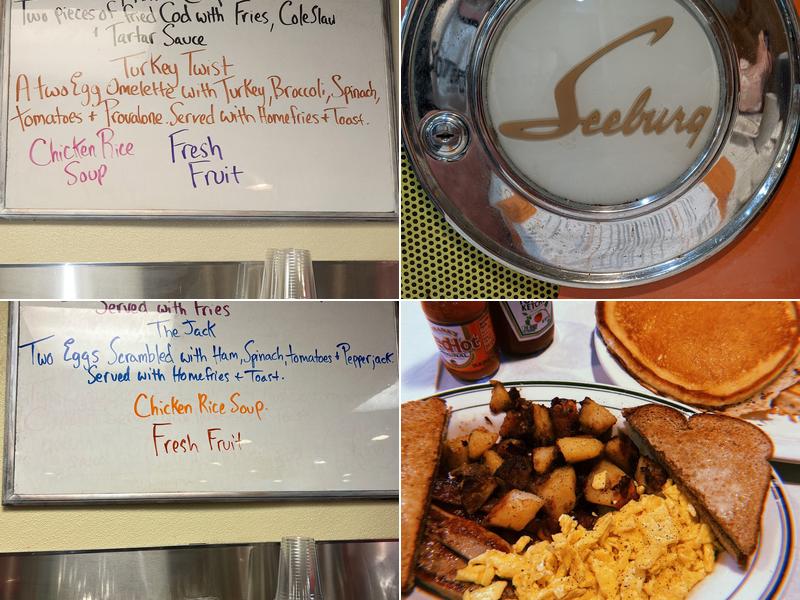 Two pieces of Fried Cod with Fries, Coleslaw
+ Tartar Sauce
Turkey Twist
A two Egg Omelette with Turkey, Broccoli, Spinach,
tomatoes + Provalone. Served with Homefries + Toast.
Chicken Rice
Soup
Fresh
Fruit
Seeburg
Served with Fries
The Jack
Two Eggs Scrambled with Ham, Spinach, tomatoes + Pepperjack.
Served with Homefries + Toast.
Chicken Rice Soup.
Fresh Fruit
RedHot
KETCHUP